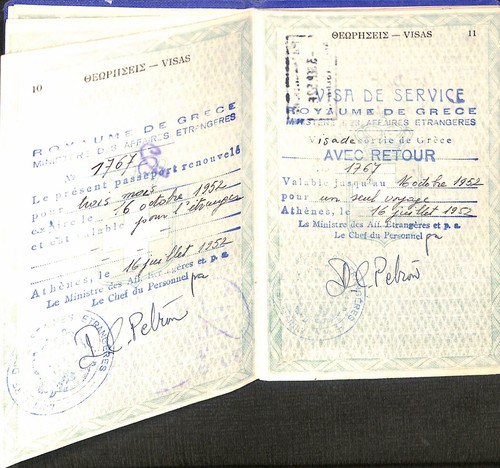 10 ΘΕΩΡΗΣΕΙΣ — VISAS
ROYAUME DE GRÈCE
MINISTERE DES AFFAIRES ETRANGERES
No 1767
Le présent passeport renouvelé
pour trois mois
expire le 16 octobre 1952
et est valable pour l'étranger
Athènes, le 16 juillet 1952
Le Ministre des Aff. Etrangères et p. a.
Le Chef du Personnel pa
D. C. Petron
ETRANGERES
ΘΕΩΡΗΣΕΙΣ — VISAS 11
VISA DE SERVICE
ROYAUME DE GRECE
MINISTERE DES AFFAIRES ETRANGERES
Visa de sortie de Grèce
AVEC RETOUR
1767
Valable jusqu'au 16 octobre 1952
pour un seul voyage
Athènes, le 16 juillet 1952
Le Ministre des Aff. Etrangères et p. a.
Le Chef du Personnel pa
D. C. Petron